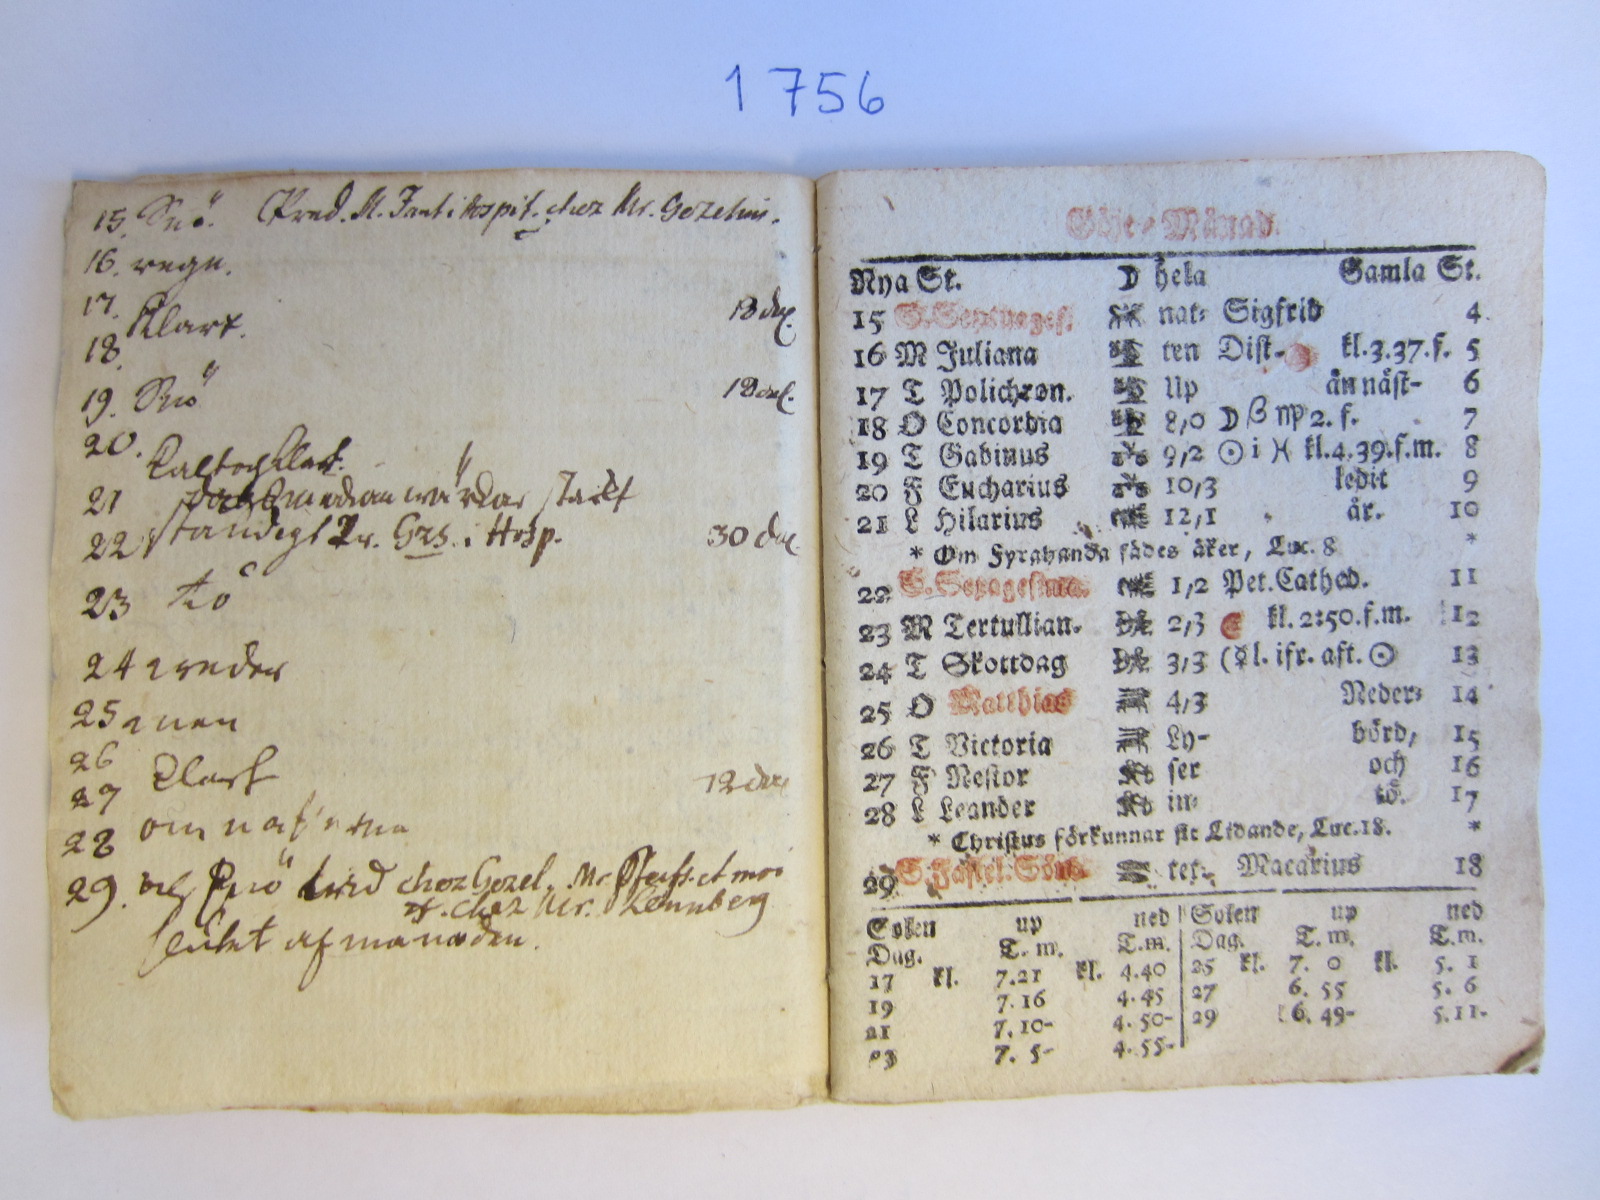 1756
15. Snö. Pred. M. Fant i Hospit. chez Mr. Gezelius.
16. regn.
17. 18 dal.
Klart.
18.
19. Snö 18 dal.
20.
Kalt och klart.
21 wärkar starkt
22 Hr. Grs. i Hosp. 30 dal.
23 tö
24 wreder
25
26
Klart
27 12 dal
28 om
29. och Snö chez Gezel. Mr et moi
chez Mr. Lönnberg
slutet af månaden.
Göje-Månad.
Nya St. ☽ hela Gamla St.
15 S. Septuages. nat- Sigfrid 4
16 M Juliana ten Dist- kl.3.37.f. 5
17 T Polichron. up än näst- 6
18 O Concordia 8,0 ☽ β ♍ 2. f. 7
19 T Gabinus 9,2 ☉ i ♓ kl.4.39.f.m. 8
20 F Eucharius 10,3 ledit 9
21 L Hilarius 12,1 är. 10
* Om Fyrahanda sädes åker, Luc. 8 *
22 S. Sexagesima. 1,2 Pet. Cathed. 11
23 M Tertullian. 2,3 ☾ kl. 2:50.f.m. 12
24 T Skottdag 3,3 (☿ l. ifr. aft. ☉ 13
25 O Matthias 4,3 Neder- 14
26 T Victoria Ly- börd, 15
27 F Nestor ser och 16
28 L Leander in- tö. 17
* Christus förkunnar sit Lidande, Luc.18. *
29 S. Fastel. Sönd. tet- Macarius 18
Solen up ned Solen up ned
Dag. T. m. T.m. Dag. T. m. T.m.
17 kl. 7.21 kl. 4.40 25 kl. 7. 0 kl. 5. 1
19 7.16 4.45 27 6. 55 5. 6
21 7.10- 4.50- 29 6. 49- 5.11-
23 7. 5- 4.55-